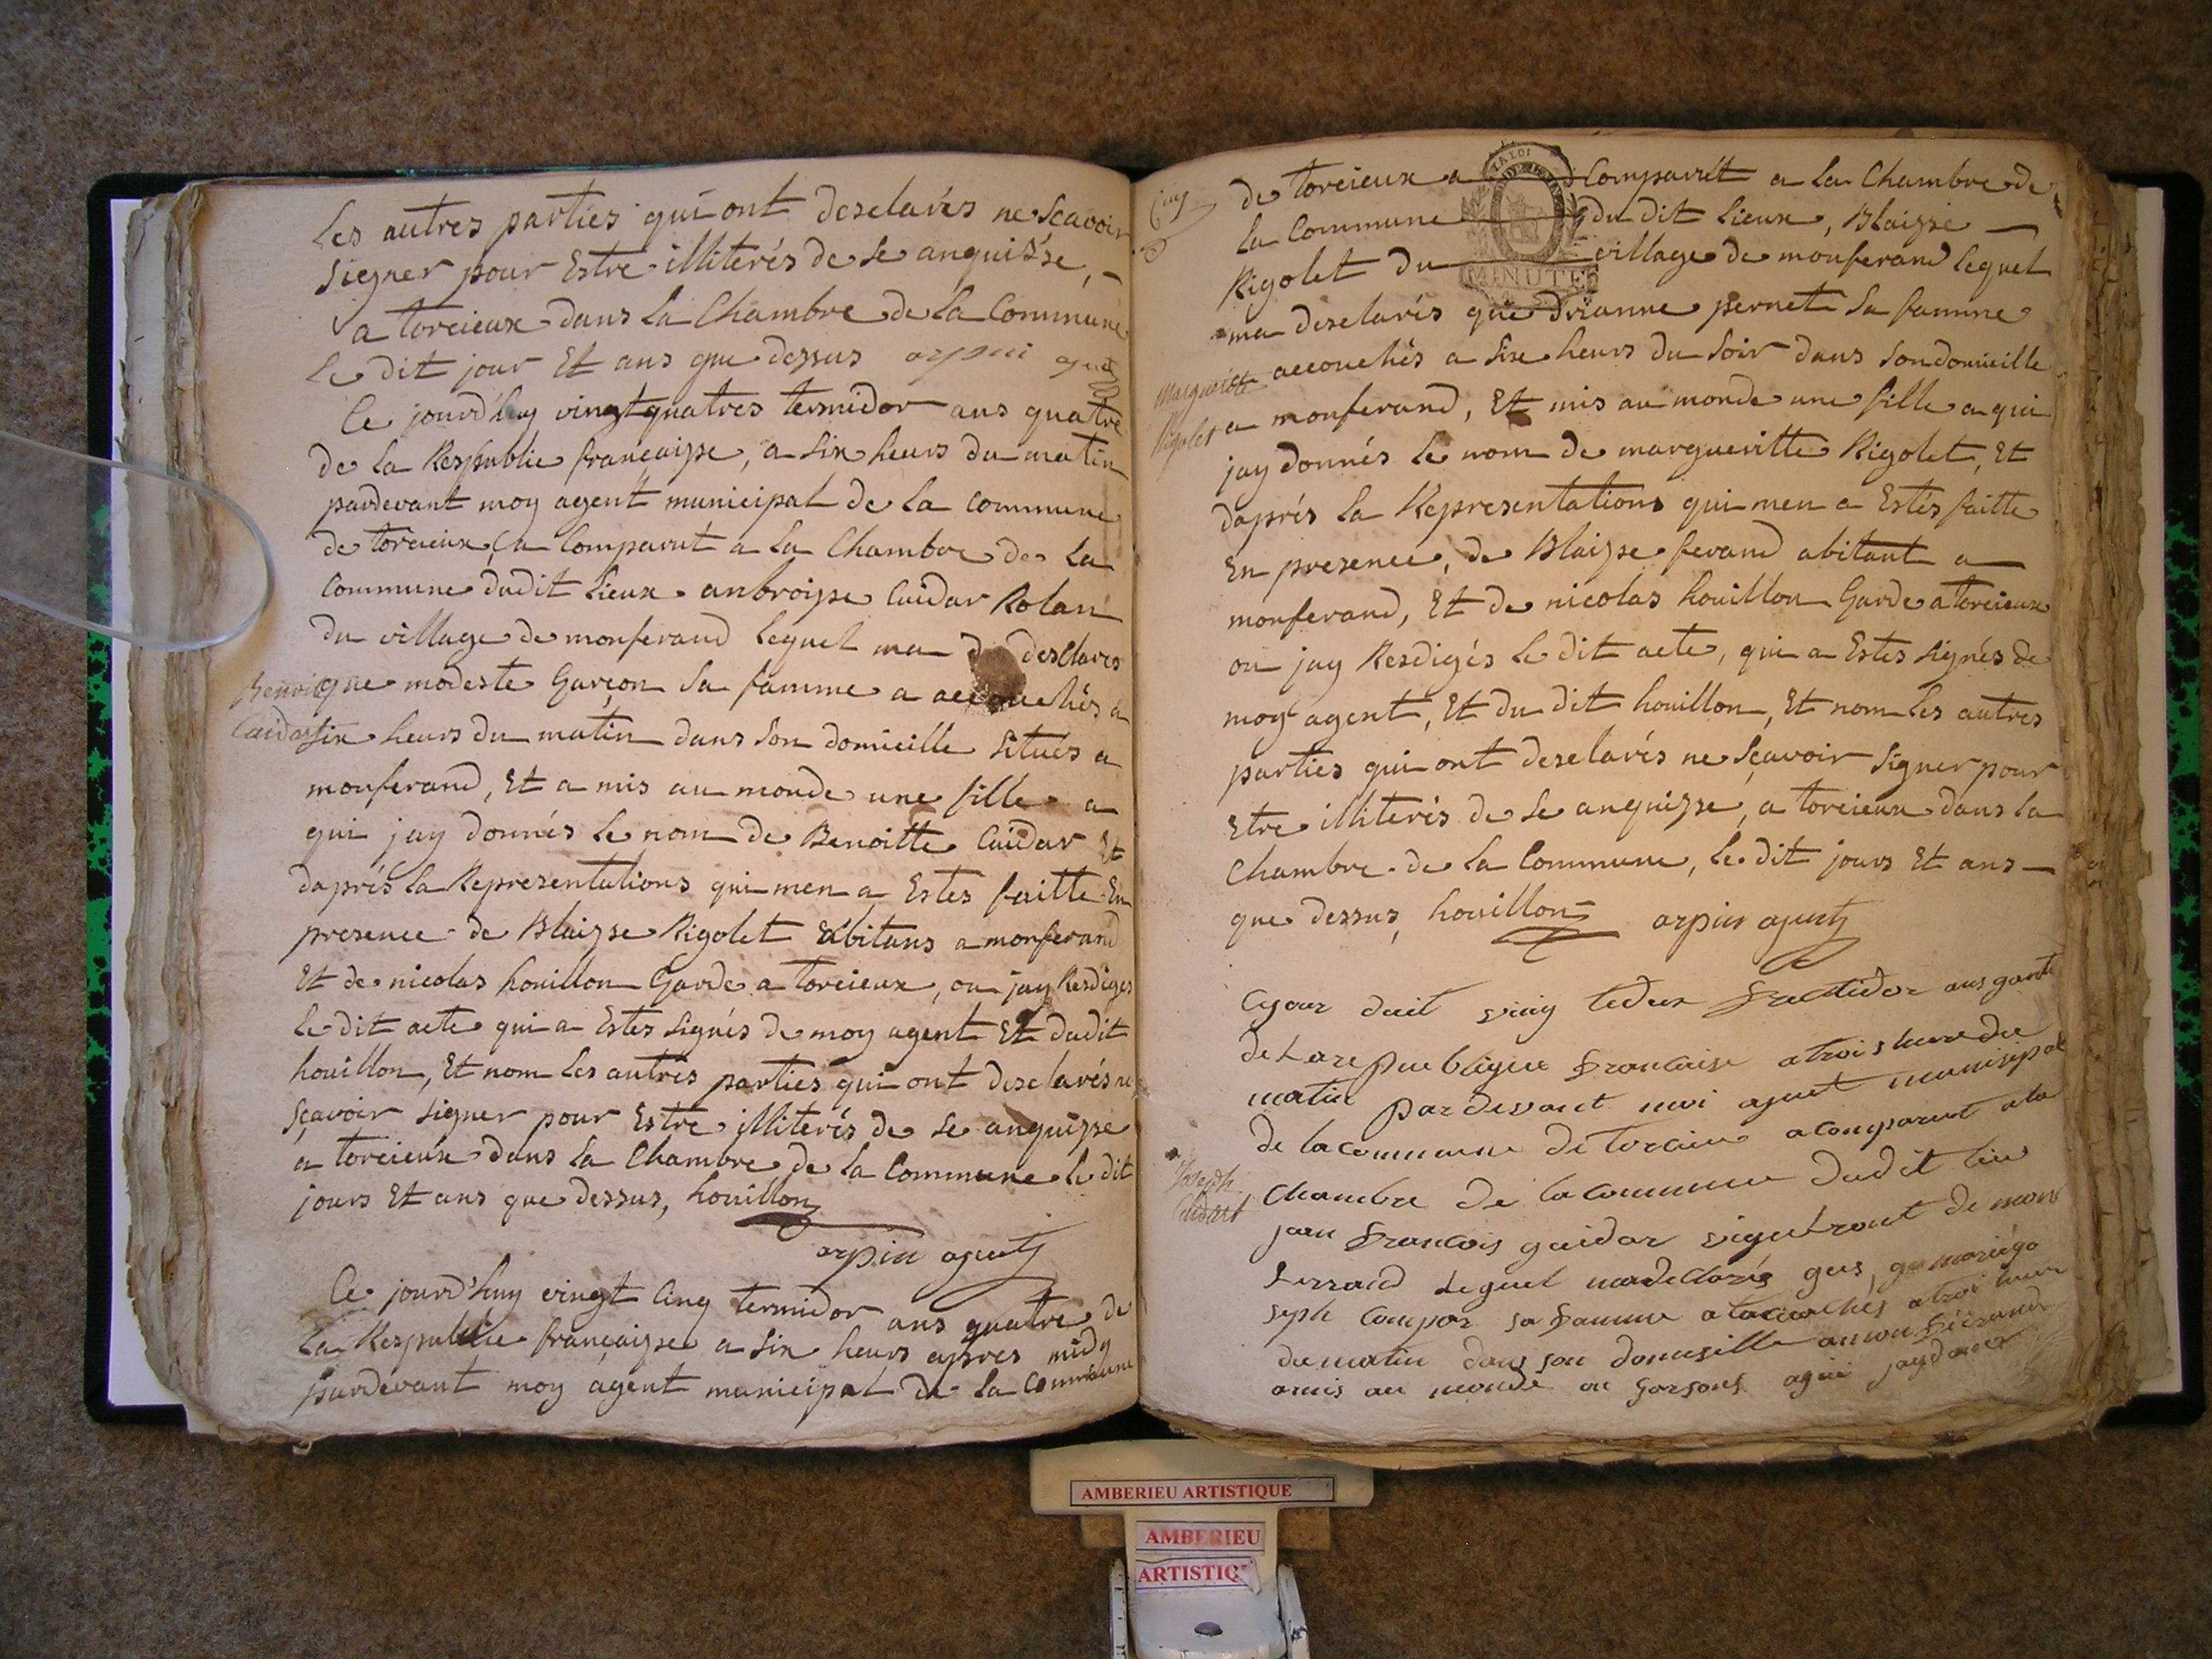 Les autres parties qui ont desclarés ne scavoir
signer pour Estre illiterés de se anquisse,
a torcieux dans la Chambre de la Commune
le dit jour Et ans que dessus arpin agent
Ce jourd'huy vingt quatres termidor ans quatre
de la Respublic francaisse, a six heurs du matin
pardevant moy agent municipal de la commune
de torcieux, a Comparut a la Chambre de La
commune dudit lieux anbroisse Cuidar Rolan
du village de monferand lequel ma desclares
que modeste Garçon sa famme a accouchés a
six heurs du matin dans son domicille situés a
monferand, Et a mis au monde une fille a
qui jay donnés le nom de Benoitte Cuidar Et
daprés la Representations qui men a Estes faitte En
presence de Blaisse Rigolet abitans a monferand
Et de nicolas houillon Garde a torcieux, ou jay Resdiges
le dit acte qui a Estes signés de moy agent Et dudit
houillon, Et nom les autres parties qui ont desclarés ne
sçavoir signer pour Estre illiterés de se anquisse
a torcieux dans la Chambre de la Commune le dit
jours Et ans que dessus, houillon
arpin agent
Ce jourd'huy vingt Cinq termidor ans quatre de
la Respublic françaisse a six heurs apres midy
pardevant moy agent municipal de la commune
Benoite
Cuidar
de torcieux a Comparut a la Chambre de
la Commune du dit lieux, Blaisse
Rigolet du village de monferand lequel
LA LOI
MINUTE
ma desclarés que pernet sa famme
accouchés a six heurs du soir dans son domicille
a monferand, Et mis au monde une fille a qui
jay donnés le nom de margueritte Rigolet, Et
daprés la Representations qui men a Estés faitte
En presence, de Blaisse ferand abitant a
monferand, Et de nicolas houillon Garde a torcieux
ou jay Resdigés le dit acte, qui a Estes signés de
moy agent, Et du dit houillon, Et nom les autres
parties qui ont desclarés ne sçavoir signer pour
Etre illiterés de se anquisse, a torcieux dans la
Chambre de la Commune, le dit jours Et ans
que dessus, houillon arpin agent
marguerite
Rigolet
duit ving tedeux fructidor ans
de La re publique francaise a trois heure du
matin par devant moi agent municipal
de la commune de torcieu a comparut a la
chambre de la commune dudit lieu
jean francois guidar de mon
ferrand lequel ma declarés
seph sa famme a lacouchés a troi heure
du matin dans son domisille a mon ferand
a mis au monde un garsons a qui jay donés
Joseph
Cuidart
AMBERIEU ARTISTIQUE
AMBERIEU
ARTISTIQ